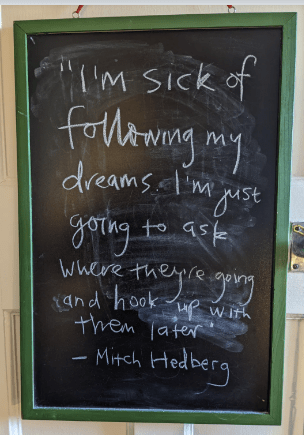 "I'm sick of
following my
dreams. I'm just
going to ask
where they're going
and hook up with
them later"
- Mitch Hedberg